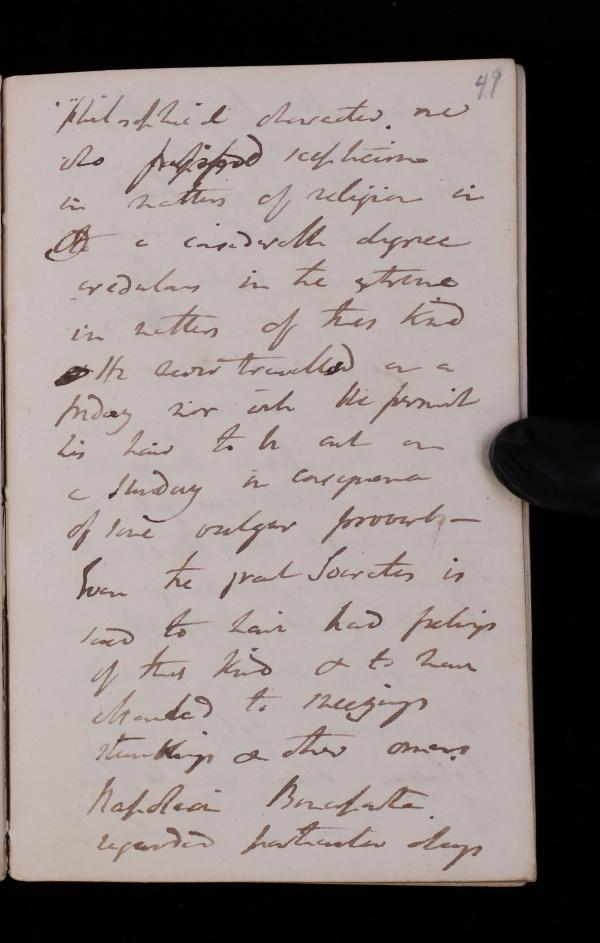 49
Philosophical character. one
who professed scepticism
in matters of religion in
a considerable degree
credulous in the extreme
in matters of this kind
He never travelled on a
friday nor would He permit
his hair to be cut on
a Sunday in consequence
of some vulgar proverb —
Even the great Socrates is
said to have had feelings
of this kind & to have
attended to sneezings
stumblings & other omens
Napoleon Bonaparte
regarded particular days